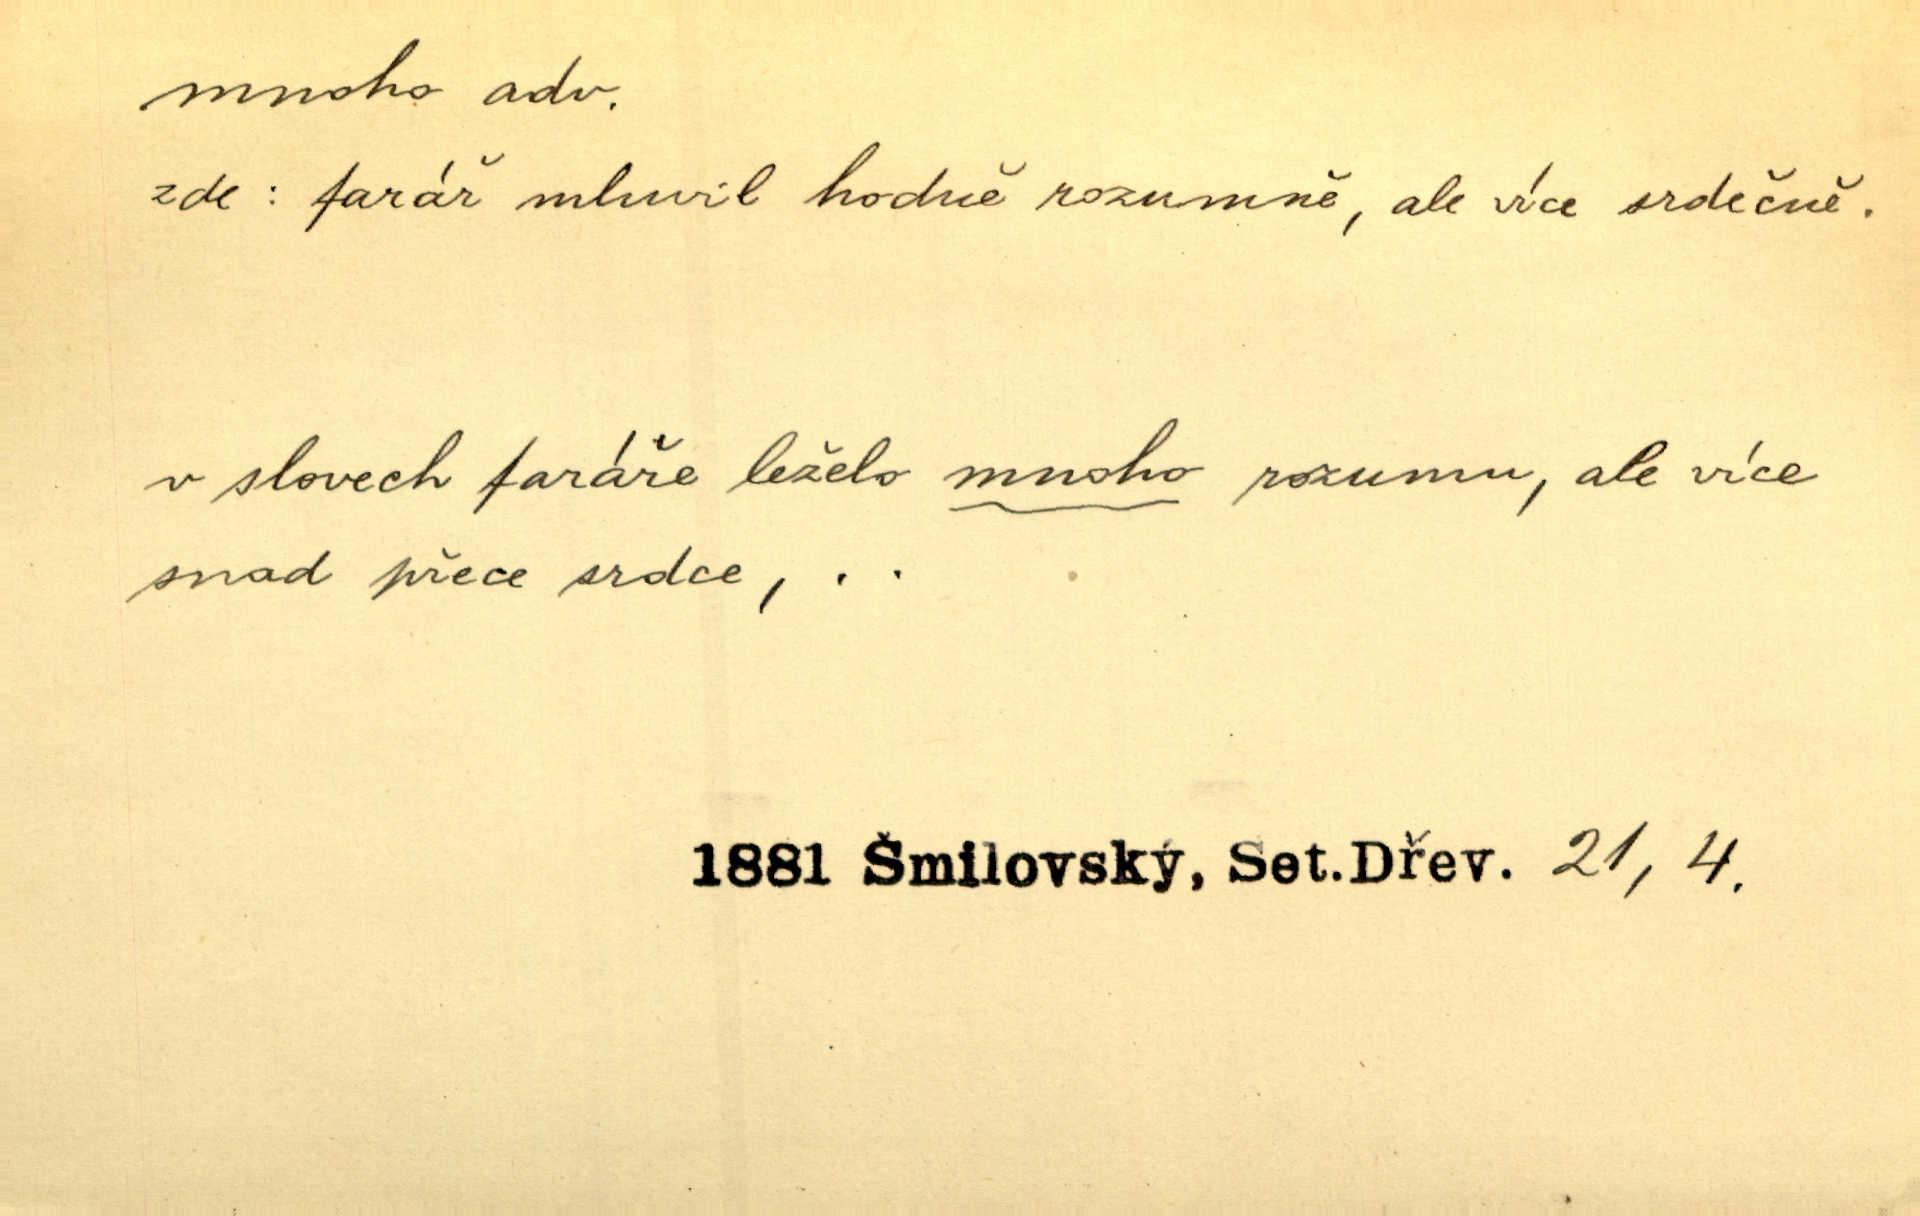 mnoho adv.
zde : farář mluvil hodně rozumně, ale více srdečně.
v slovech faráře leželo mnoho rozumu, ale více
snad přece srdce, . .
1881 Šmilovský, Set.Dřev. 21, 4.